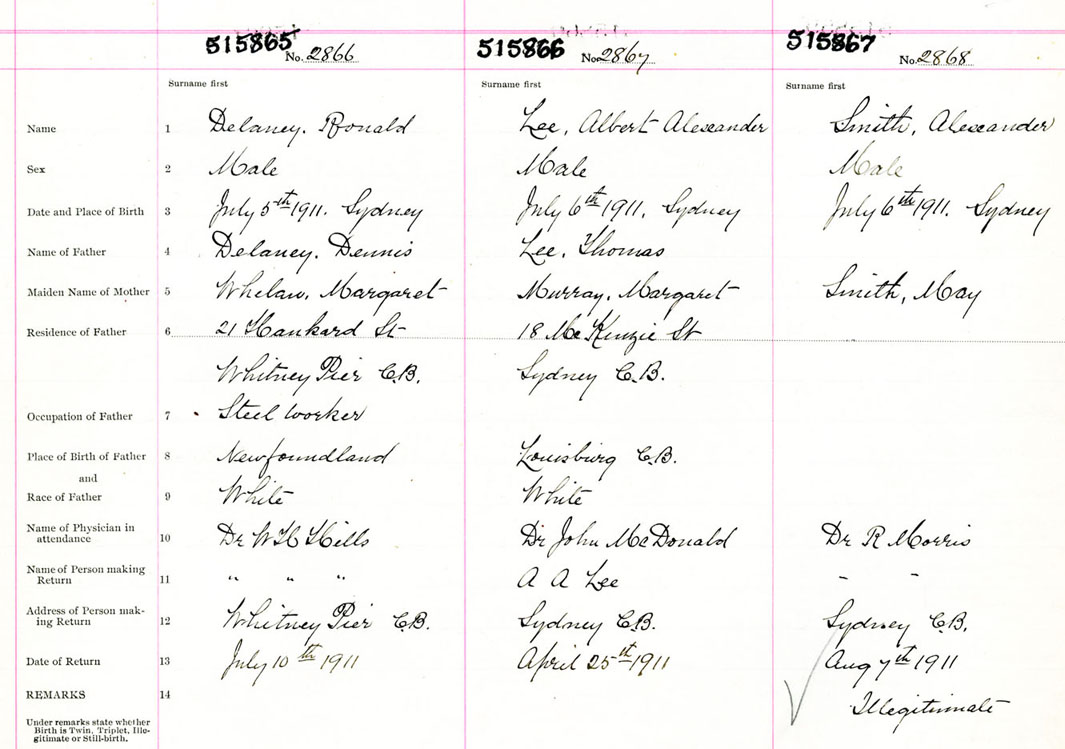 515865 No. 2866 515866 No. 2867 515867 No. 2868
Surname first Surname first Surname first
Name 1 Delaney, Ronald Lee, Albert Alexander Smith, Alexander
Sex 2 Male Male Male
Date and Place of Birth 3 July 5th 1911. Sydney July 6th 1911, Sydney July 6th 1911. Sydney
Name of Father 4 Delaney, Dennis Lee, Thomas
Maiden Name of Mother 5 Whelan, Margaret Murray, Margaret Smith, May
Residence of Father 6 21 Hankard St 18 McKenzie St
Whitney Pier C.B. Sydney C.B.
Occupation of Father 7 Steel worker
Place of Birth of Father 8 Newfoundland Louisburg C.B.
and
Race of Father 9 White White
Name of Physician in
attendance 10 Dr W H Hills Dr John McDonald Dr R Morris
Name of Person making
Return 11 " " " A A Lee " "
Address of Person mak-
ing Return 12 Whitney Pier C.B. Sydney C.B. Sydney C.B.
Date of Return 13 July 10th 1911 April 25th 1911 Aug 7th 1911
REMARKS 14 Illegitimate
Under remarks state whether
Birth is Twin, Triplet, Ille-
gitimate or Still-birth.